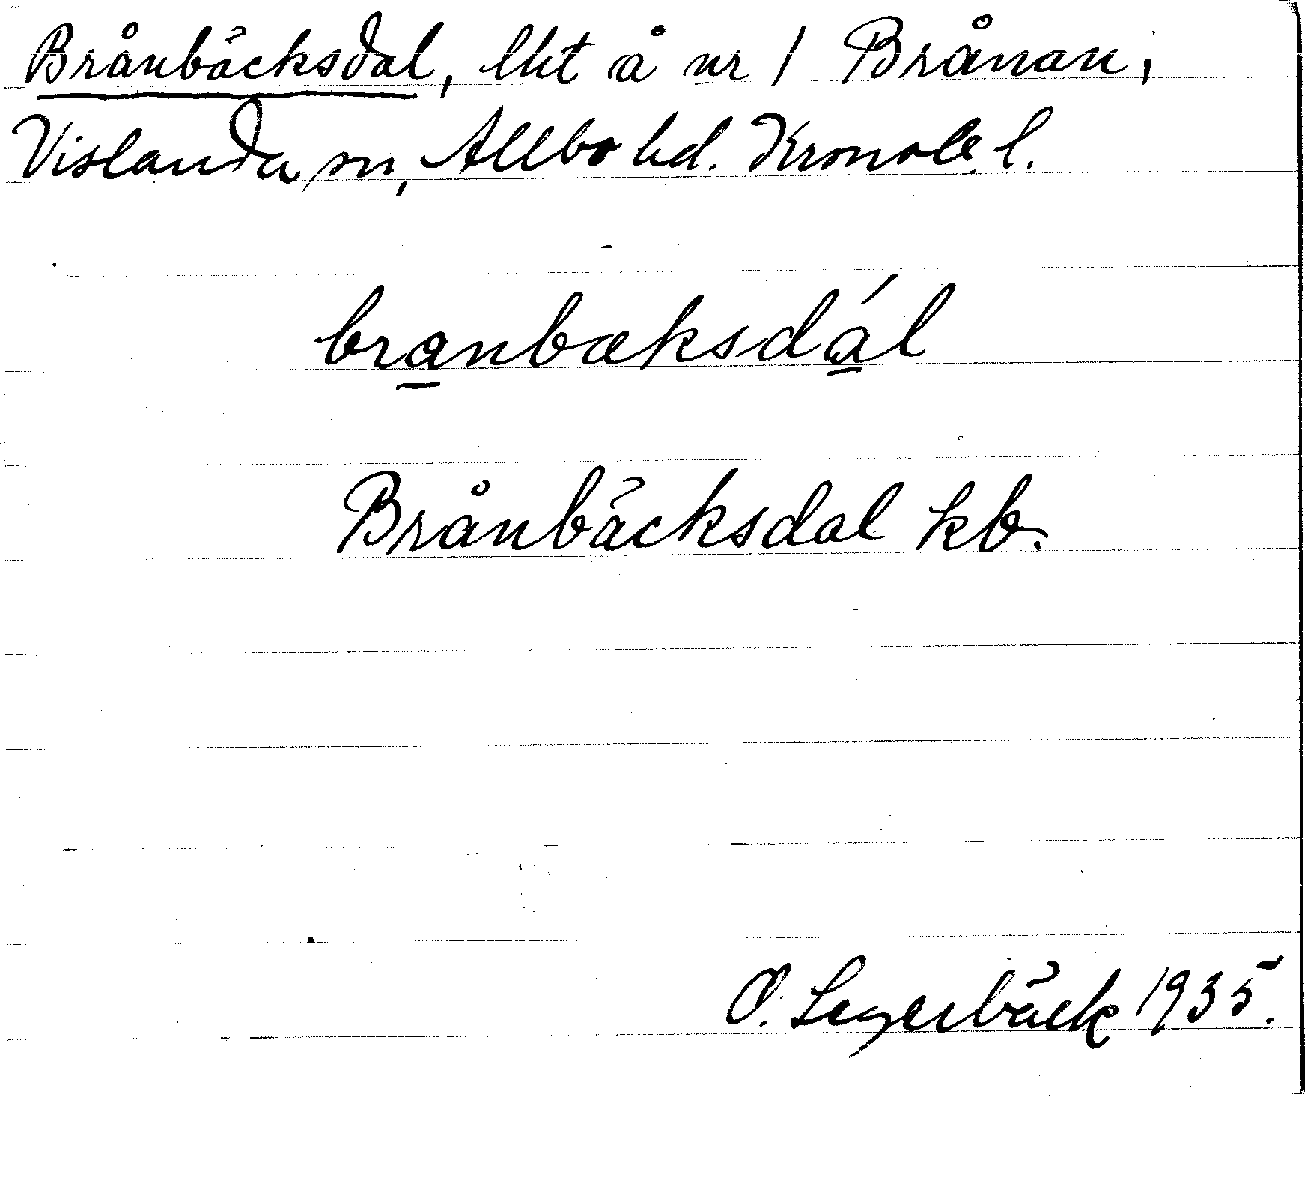 Brånbäcksdal, lht å nr 1 Brånan,
Vislanda sn, Allbo hd. Kronob. l.
branbæksdál
Brånbäcksdal kb.
O. Lagerbäck 1935.